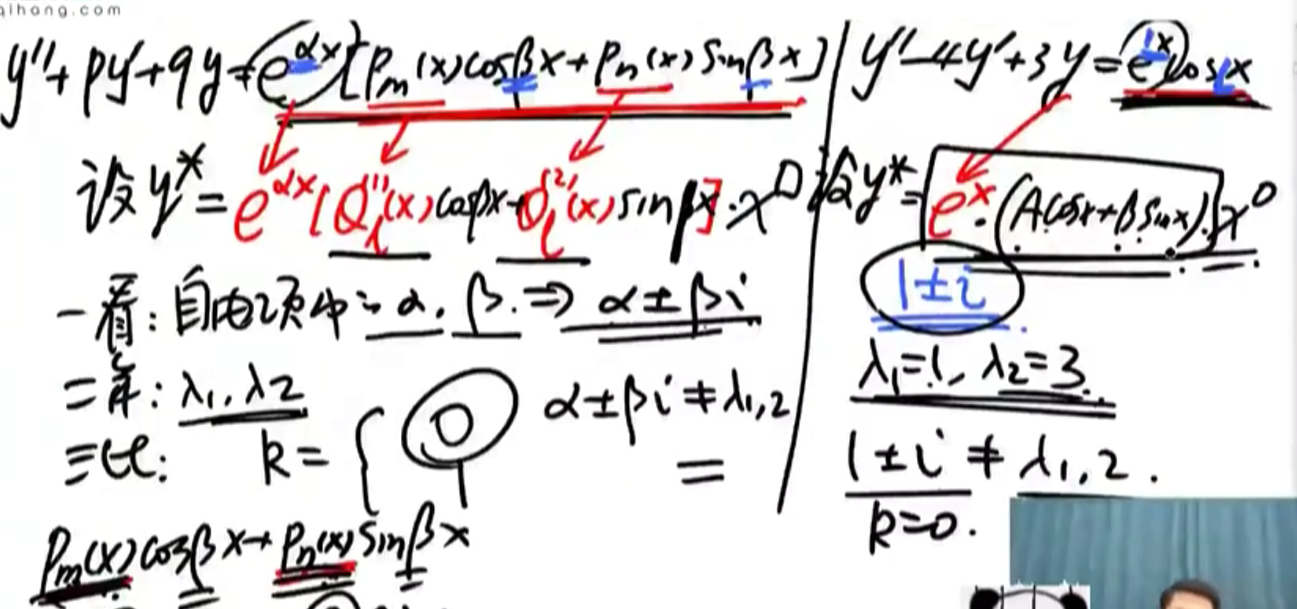 qihang.com
y''+py'+qy=e^{αx}[P_m(x)cosβx+P_n(x)sinβx]
设y*=e^{αx}[Q_l^{(1)}(x)cosβx+Q_l^{(2)}(x)sinβx]·x^0
一看:自由项中:α.β.⇒α±βi
二算:λ1,λ2
三比: k={0 α±βi≠λ1,2
1 =
P_m(x)cosβx+P_n(x)sinβx
y''-4y'+3y=e^{1x}cos1x
设y*=e^x·(Acosx+Bsinx)·x^0
1±i
λ1=1,λ2=3
1±i≠λ1,2.
k=0.